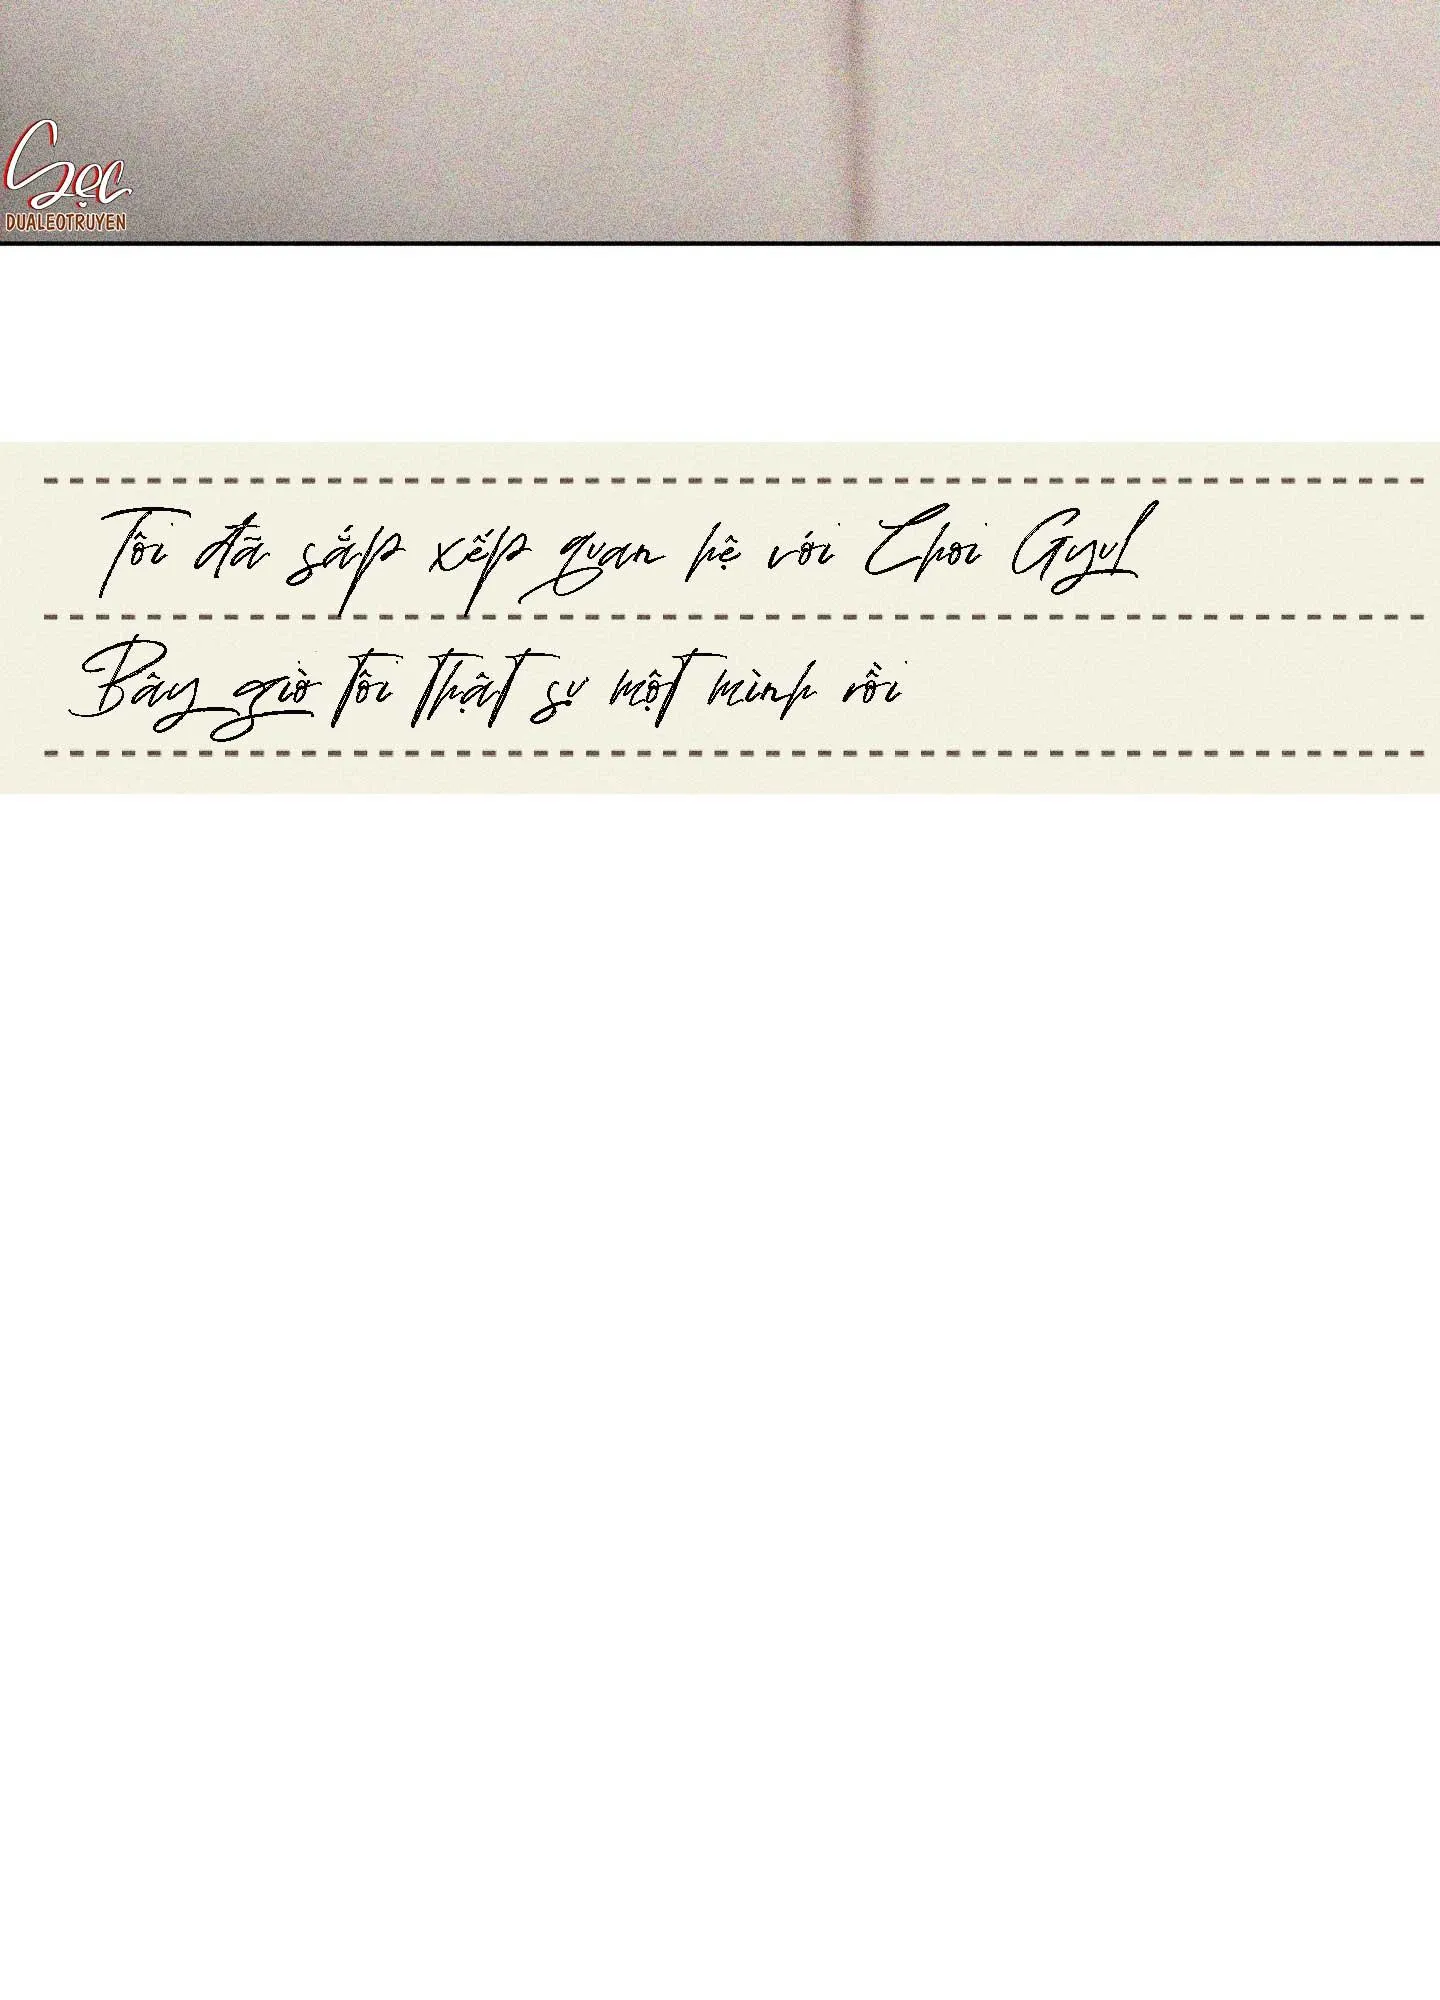 Sẹc
DUALEOTRUYEN
Tôi đã sắp xếp quan hệ với Choi Gyul
Bây giờ tôi thật sự một mình rồi